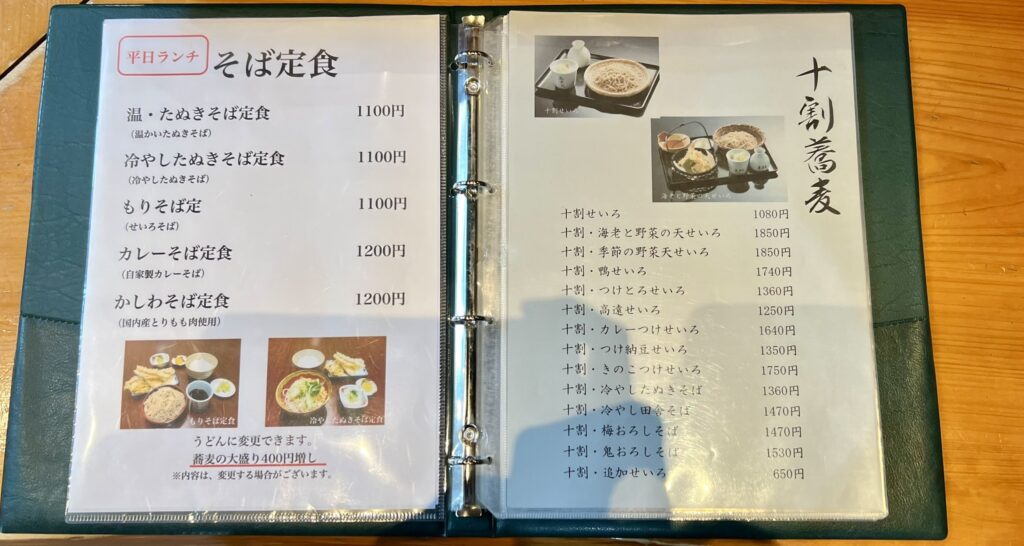 平日ランチ そば定食
温・たぬきそば定食 1100円
(温かいたぬきそば)
冷やしたぬきそば定食 1100円
(冷やしたぬきそば)
もりそば定 1100円
(せいろそば)
カレーそば定食 1200円
(自家製カレーそば)
かしわそば定食 1200円
(国内産とりもも肉使用)
もりそば定食
冷やしたぬきそば定食
うどんに変更できます。
蕎麦の大盛り400円増し
※内容は、変更する場合がございます。
十割蕎麦
十割せいろ
海老と野菜の天せいろ
十割せいろ 1080円
十割・海老と野菜の天せいろ 1850円
十割・季節の野菜天せいろ 1850円
十割・鴨せいろ 1740円
十割・つけとろせいろ 1360円
十割・高遠せいろ 1250円
十割・カレーつけせいろ 1640円
十割・つけ納豆せいろ 1350円
十割・きのこつけせいろ 1750円
十割・冷やしたぬきそば 1360円
十割・冷やし田舎そば 1470円
十割・梅おろしそば 1470円
十割・鬼おろしそば 1530円
十割・追加せいろ 650円